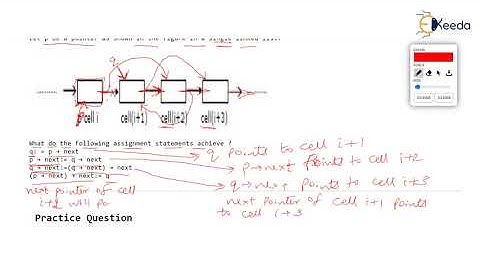 Keeda
Let p be a pointer as shown in the figure in a single linked list.
q
p
cell i
cell(i+1)
cell(i+2)
cell(i+3)
What do the following assignment statements achieve ?
q: = p → next
p → next:= q → next
q → next:=(q → next) → next
(p → next) → next:= q
q points to cell i+1
p→next points to cell i+2
q→next points to cell i+3
next pointer of cell i+1 points
to cell i+3
next pointer of cell
i+2 will po
Practice Question